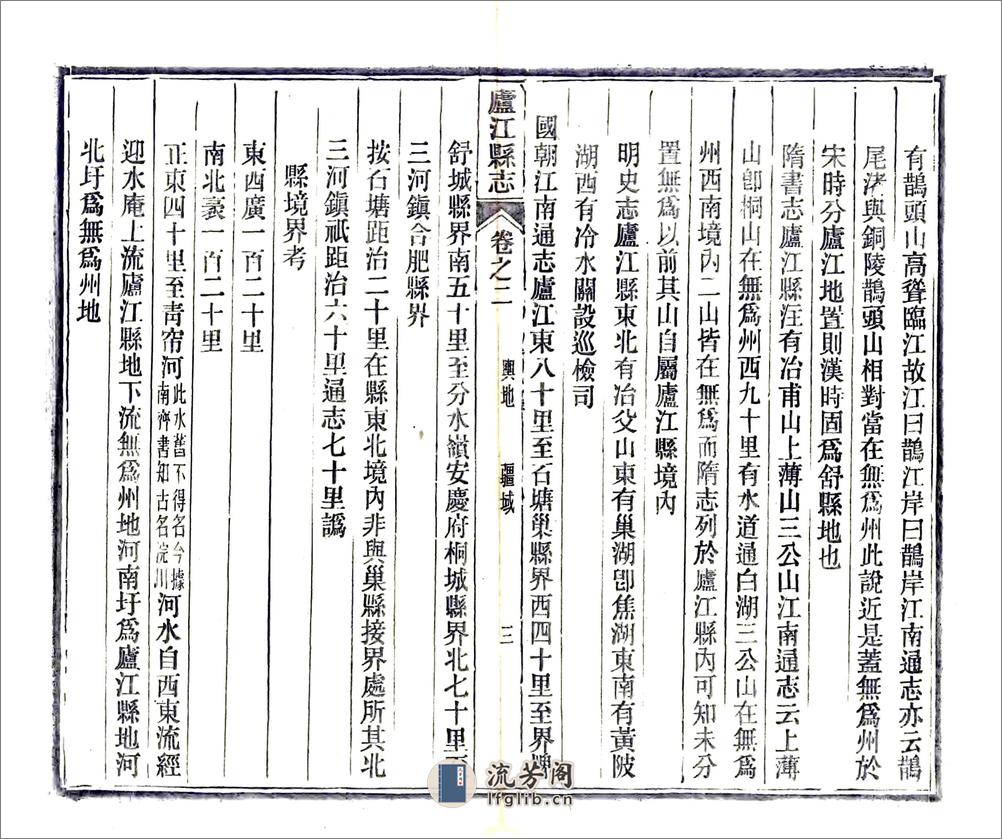 有鵲頭山高聳臨江故江曰鵲江岸曰鵲岸江南通志亦云鵲
尾渚與銅陵鵲頭山相對當在無爲州此說近是蓋無爲州於
宋時分廬江地置則漢時固爲舒縣地也
隋書志廬江縣注有冶甫山上薄山三公山江南通志云上薄
山卽桐山在無爲州西九十里有水道通白湖三公山在無爲
州西南境內二山皆在無爲而隋志列於廬江縣內可知未分
置無爲以前其山自屬廬江縣境內
明史志廬江縣東北有冶父山東有巢湖卽焦湖東南有黃陂
湖西有冷水關設巡檢司
國朝江南通志廬江東八十里至石塘巢縣界西四十里至界牌
廬江縣志
卷之二
輿地
疆域
三
舒城縣界南五十里至分水嶺安慶府桐城縣界北七十里至
三河鎭合肥縣界
按石塘距治二十里在縣東北境內非與巢縣接界處所其北
三河鎭祇距治六十里通志七十里譌
縣境界考
東西廣一百二十里
南北袤一百二十里
正東四十里至靑帘河此水舊不得名今據南齊書知古名浣川河水自西東流經
迎水庵上流廬江縣地下流無爲州地河南圩爲廬江縣地河
北圩爲無爲州地
流芳阁
lfglib.cn